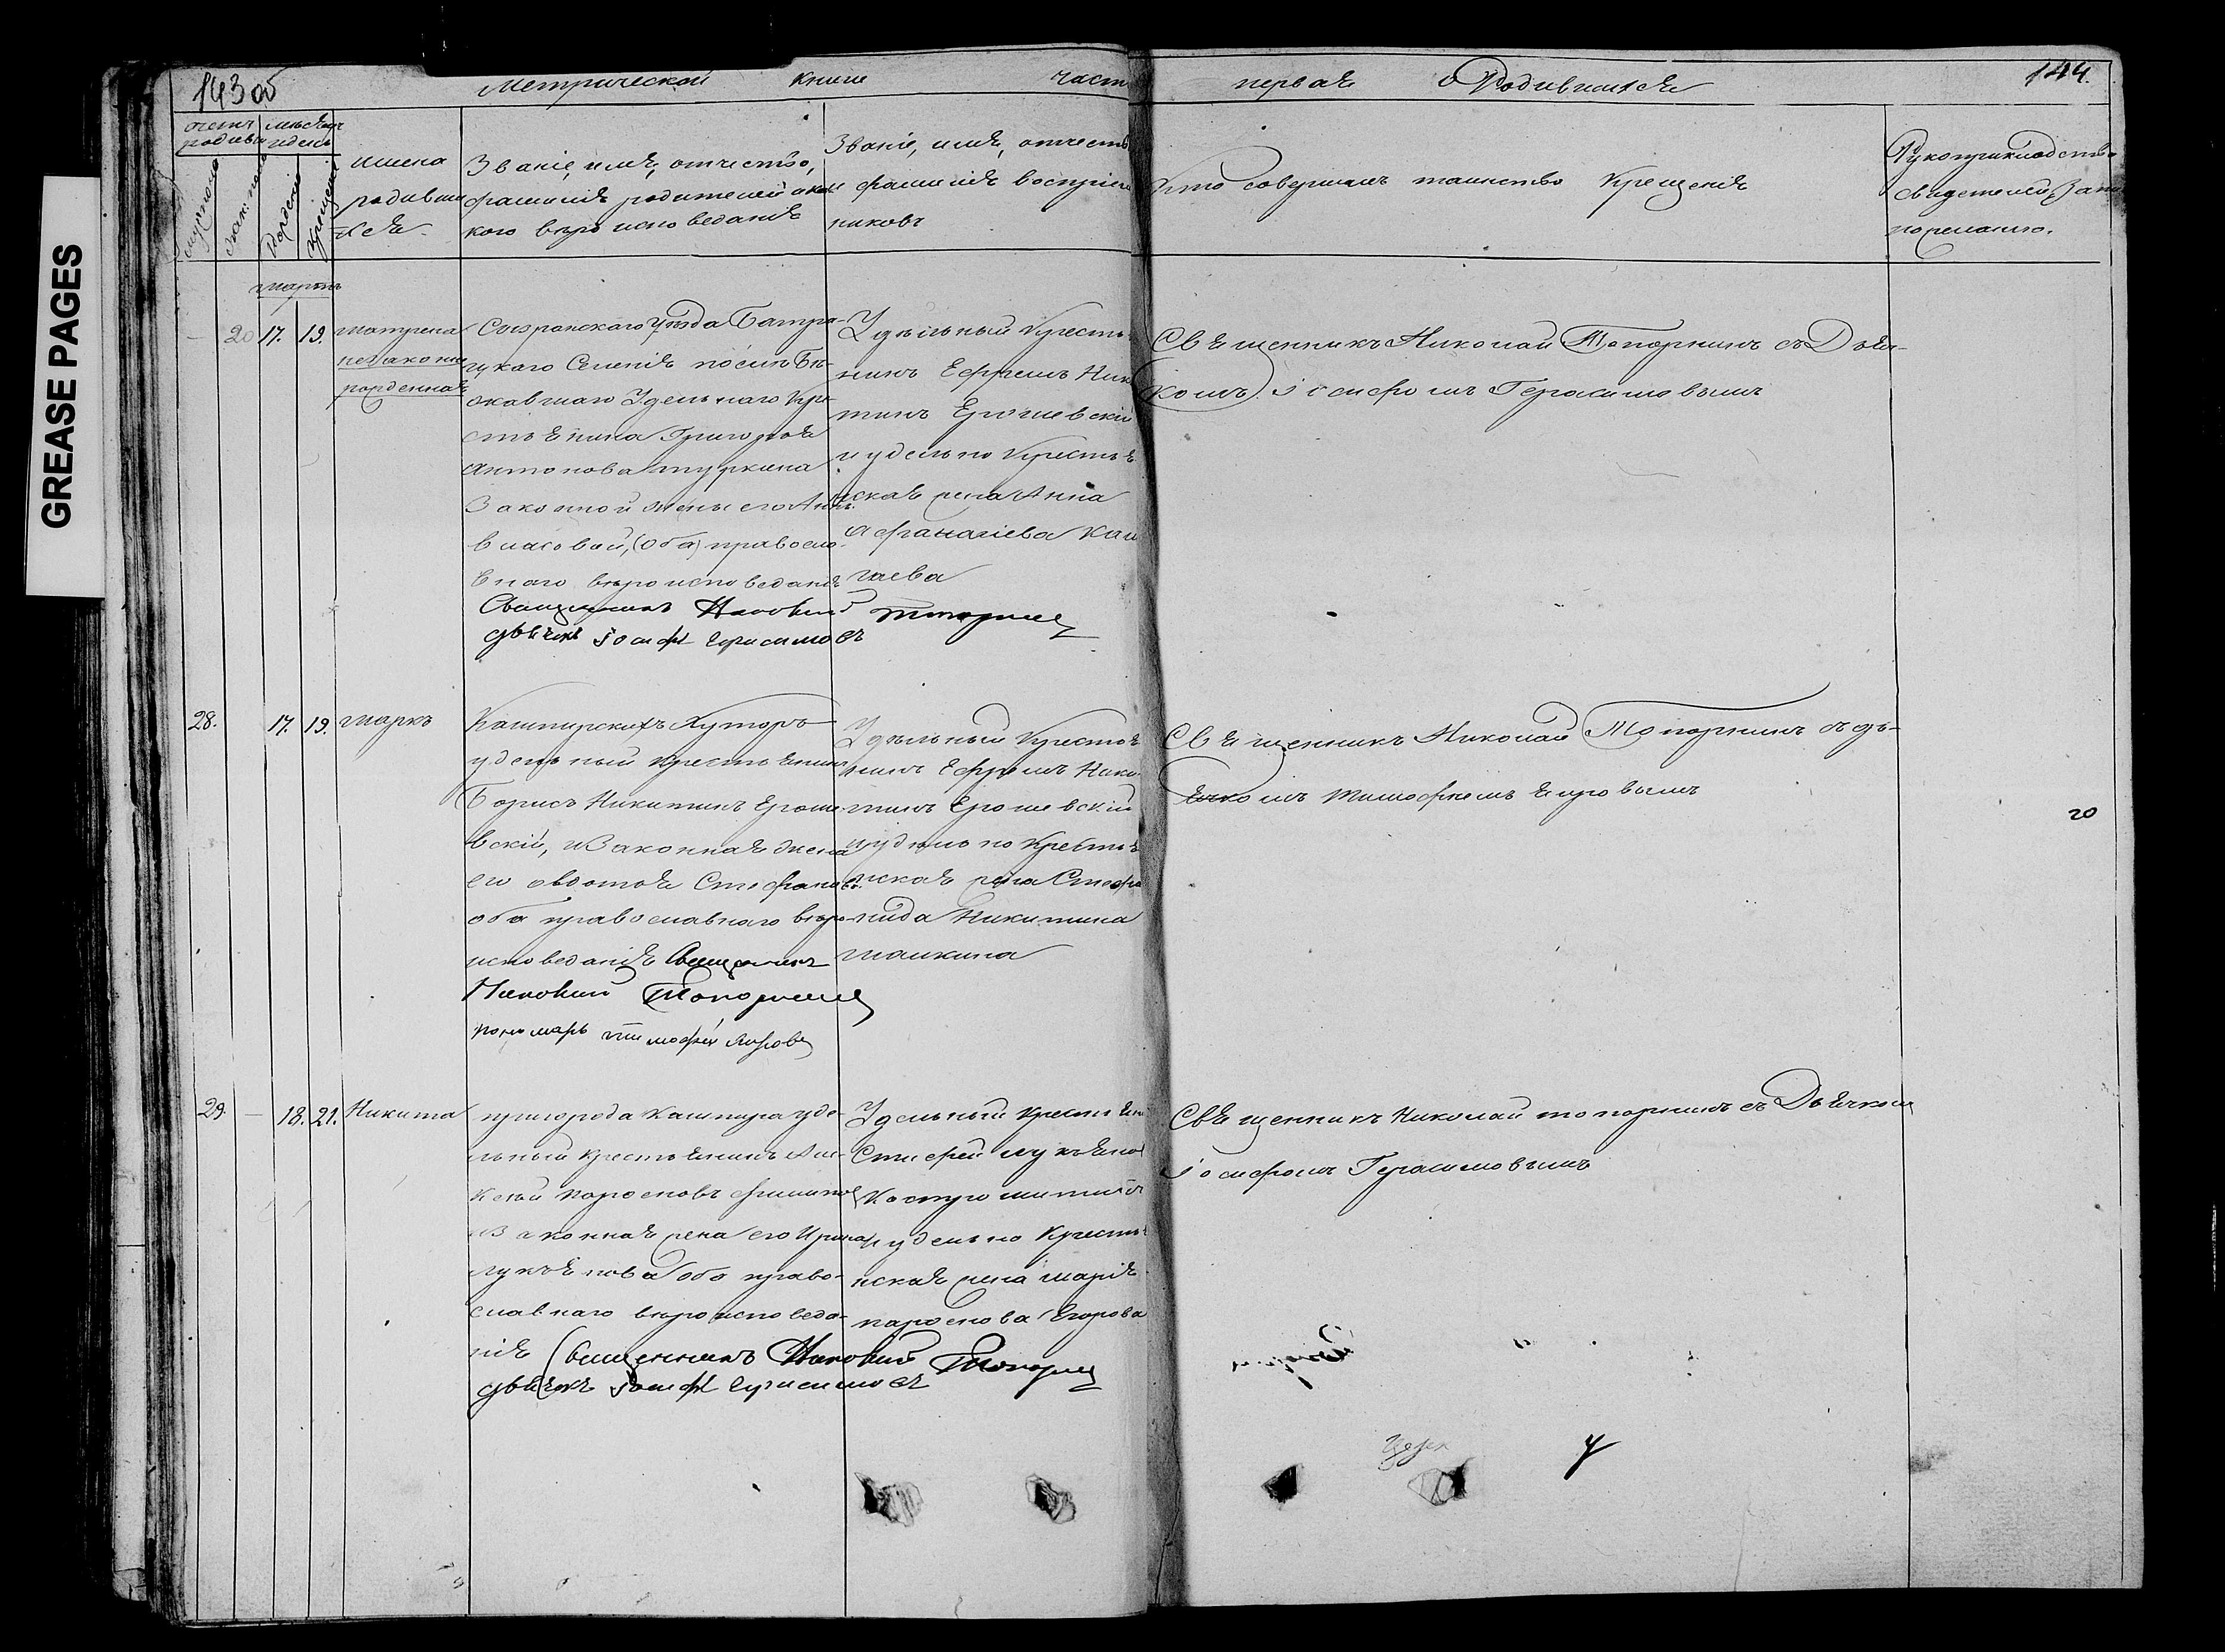 GREASE PAGES
143 об
Метрической книги часть
первая о Родившихся
144.
счетъ родивш.
мѣсяцъ и день
мужеска
женска
Рожденія
Крещенія
имена
родивши
хся
Званіе, имя, отчество,
фамилія родителей и ка
кого вѣроисповеданія
Званіе, имя, отчество
фамилія воспріем
никовъ
Кто совершалъ таинство Крещенія
Рукоприкладство
свидетелей Запи
по желанию.
Мартъ
20 17. 19. Матрена
незаконно
рожденная
Сызранскаго уѣзда Батра-
цкаго Селенія послѣ Бѣ-
жавшаго Удельнаго Кре
стьянина Григорья
Антонова туркина
Законной жены его Анны
Власовой, (оба) правосла-
внаго вѣроисповеданія
Священникъ Николай Топорнинъ
дьячекъ Іосифъ Герасимовъ
Удѣльный Крестья
нинъ Ефремъ Ники
тинъ Ерошевскій
и удельно Крестья
нская жена Анна
Афанасіева
Священникъ Николай Топорнинъ съ Дья-
комъ Іосифомъ Герасимовымъ
28. 17. 19. Маркъ
Кашпирскихъ Хуторъ
удельный крестьянинъ
Борисъ Никитинъ Ероше
вскій, и Законная жена
его Авдотья Стефанова
оба православнаго вѣро
исповеданія Священникъ
Николай Топорнинъ
пономарь Тимофей Егоровъ
Удѣльный Крестья
нинъ Ефремъ Ники
тинъ Ерошевскій
и удельно Крестья
нская жена Стефа
нида Никитина
Священникъ Николай Топорнинъ съ дь-
ячкомъ Тимофѣемъ Егоровымъ
20
29. 18. 21. Никита
пригорода Кашпира уде-
льный крестьянинъ Але-
ксей Парфеновъ Филипов
и Законная жена его Ирина
Лукьянова оба право-
славнаго вѣроисповеда-
нія Священникъ Николай Топорнинъ
дьячекъ Іосифъ Герасимовъ
Удельный крестьяни
Стифей Лукьянов
и удельно Крестья
нская жена Марія
парфенова Егорова
Священникъ Николай топорнинъ съ Дьячком
Іосифомъ Герасимовымъ